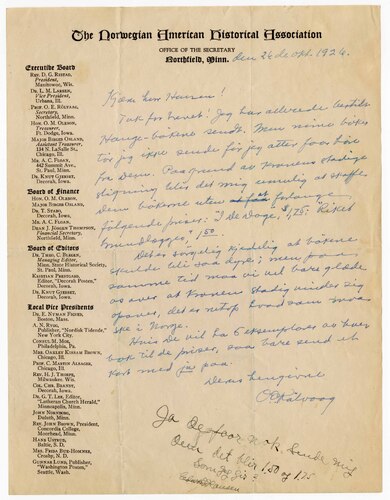 The Norwegian American Historical Association
OFFICE OF THE SECRETARY
Northfield, Minn.
den 26 de Okt. 1926.
Executive Board
REV. D. G. RISTAD,
President,
Manitowoc, Wis.
DR. L. M. LARSEN,
Vice President,
Urbana, Ill.
PROF. O. E. ROLVAAG,
Secretary,
Northfield, Minn.
HON. O. M. OLESON,
Treasurer,
Ft. Dodge, Iowa.
MAJOR BIRGER OSLAND,
Assistant Treasurer,
134 N. LaSalle St.,
Chicago, Ill.
MR. A. C. FLOAN,
442 Summit Ave.,
St. Paul, Minn.
DR. KNUT GJERSET,
Decorah, Iowa.
Board of Finance
HON. O. M. OLESON,
MAJOR BIRGER OSLAND,
DR. T. STABO,
Decorah, Iowa.
MR. A. C. FLOAN,
DEAN J. JORGEN THOMPSON,
Financial Secretary,
Northfield, Minn.
Board of Editors
DR. THEO. C. BLEGEN,
Managing Editor,
Minn. State Historical Society,
St. Paul, Minn.
KRISTIAN PRESTGARD,
Editor, "Decorah Posten,"
Decorah, Iowa.
DR. KNUT GJERSET,
Decorah, Iowa.
Local Vice Presidents
DR. E. NYMAN FIGVED,
Boston, Mass.
A. N. RYGG,
Publisher, "Nordisk Tidende,"
New York City.
CONSUL M. MOE,
Philadelphia, Pa.
MRS. OAKLEY KISSAM BROWN,
Chicago, Ill.
PROF. C. MARTIN ALSAGER,
Chicago, Ill.
REV. H. J. THORPE,
Milwaukee, Wis.
COL. CHR. BRANDT,
Decorah, Iowa.
DR. G. T. LEE, Editor,
"Lutheran Church Herald,"
Minneapolis, Minn.
JOHN NORNBORG,
Duluth, Minn.
REV. JOHN BROWN, President,
Concordia College,
Moorhead, Minn.
HANS USTRUD,
Baltic, S. D.
MRS. FRIDA BUE-HOMNES,
Crosby, N. D.
GUNNAR LUND, Publisher,
"Washington Posten,"
Seattle, Wash.
Kjære herr Hansen!
Tak for brevet! Jeg har allerede bestilt
Hauge bøkene sendt. Men mine bøker
tør jeg ikke sende før jeg atter faar høre
fra Dem. Paa grund av kronens stadige
stigning blir det mig umulig at skaffe
Dem bøkerne uten at forlange
følgende priser: "I De Dage," $1,75; "Riket
Grundlægges," 1.50
Det er sørgelig kjedelig at bøkene
skulde bli saa dyre; men paa
samme tid maa vi vel bare glæde
os over at kronen stadig vinder sig
opover, det er netop hvad som maa
ske i Norge.
Hvis De vil ha 6 eksemplarer av hver
bok til de priser, saa bare send et
kort med ja paa.
Deres hengivne
O E Rølvaag
Ja Jeg faar nok. Sende mig
Dem det blir 1.50 og 175
Hansen